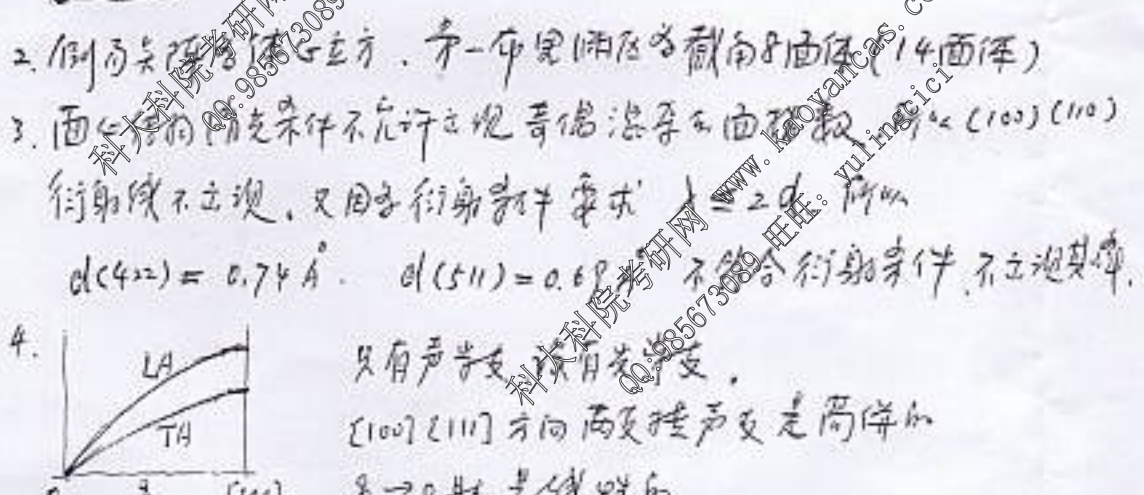 2. 倒易点阵为体心立方，第一布里渊区为截角8面体(14面体)
3. 面心的消光条件不允许出现奇偶混杂的面指数，所以(100)(110)
衍射线不出现，又因为衍射条件要求 λ≤2d 所以
d(422) = 0.74 Å. d(511) = 0.68 Å 不符合衍射条件，不出现
4. LA
TA
只有声学支，没有光学支。
[100] [111] 方向两支横声支是简併的
科大科院考研网 www.kaoyancas.co
QQ:985673089 旺旺: yulingcici
科大科院考研网
QQ:985673089